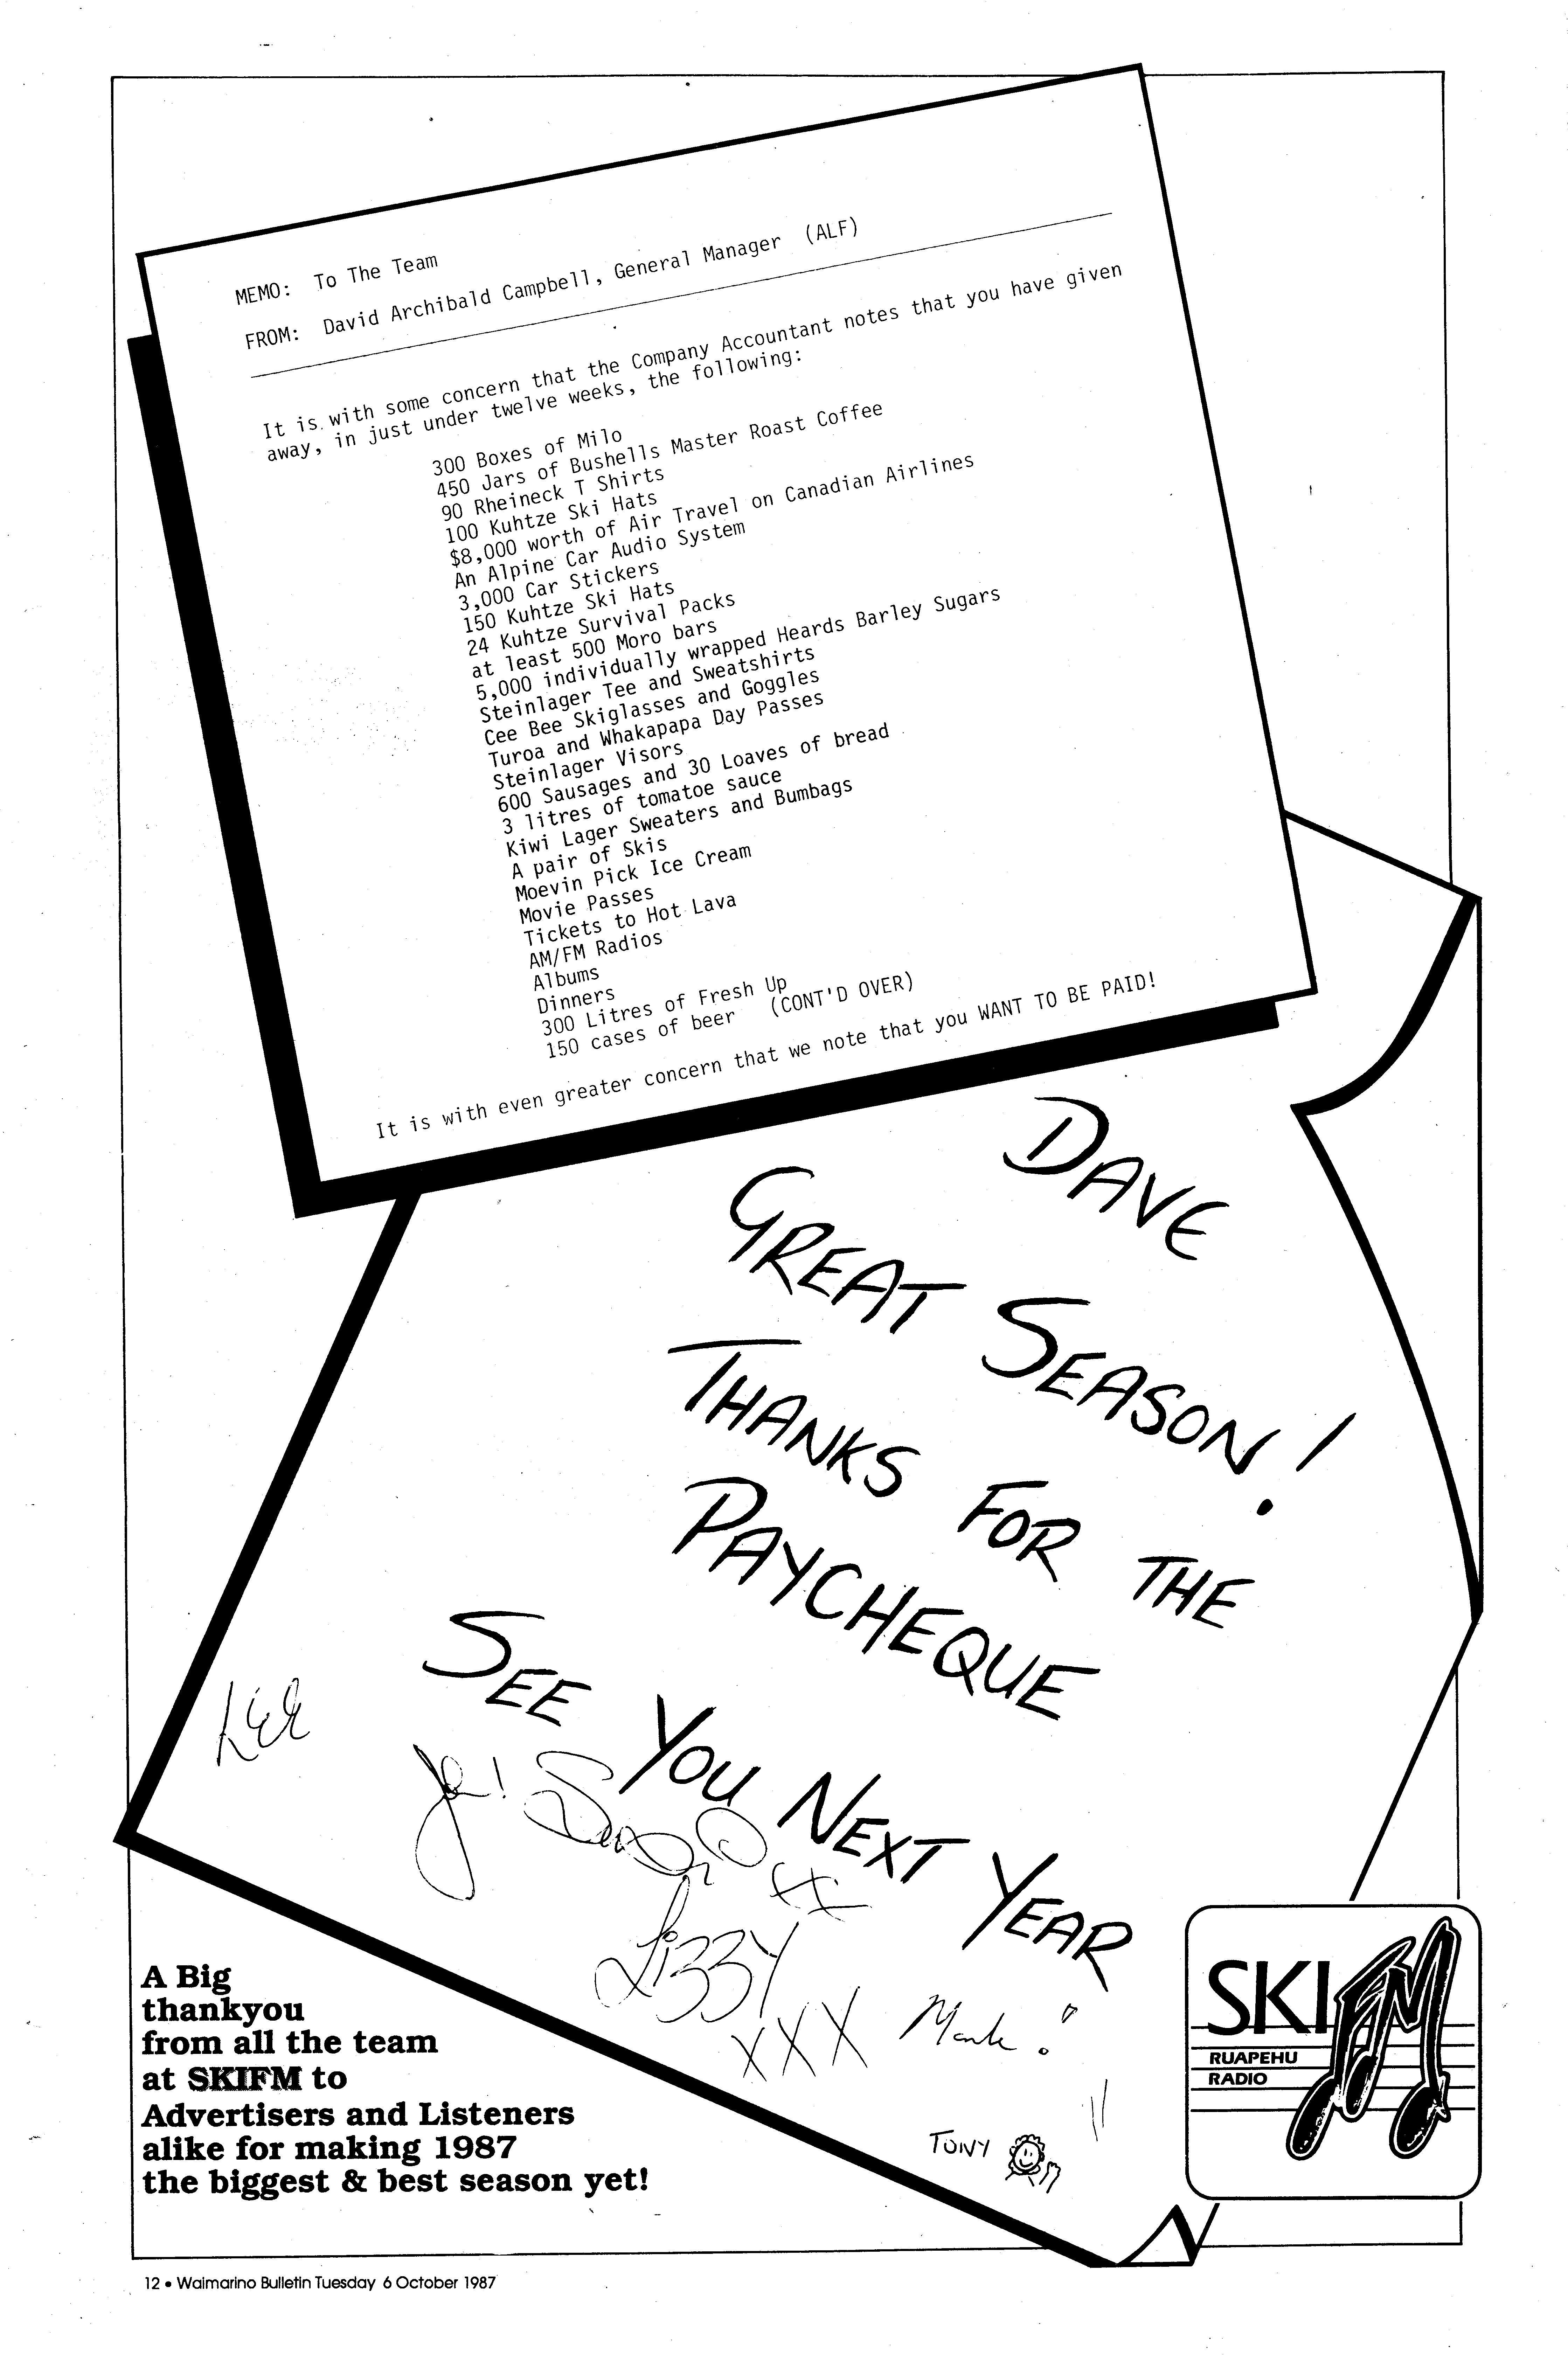 MEMO: To The Team
FROM: David Archibald Campbell, General Manager (ALF)
It is with some concern that the Company Accountant notes that you have given
away, in just under twelve weeks, the following:
300 Boxes of Milo
450 Jars of Bushells Master Roast Coffee
90 Rheineck T Shirts
100 Kuhtze Ski Hats
$8,000 worth of Air Travel on Canadian Airlines
An Alpine Car Audio System
3,000 Car Stickers
150 Kuhtze Ski Hats
24 Kuhtze Survival Packs
at least 500 Moro bars
5,000 individually wrapped Heards Barley Sugars
Steinlager Tee and Sweatshirts
Cee Bee Skiglasses and Goggles
Turoa and Whakapapa Day Passes
Steinlager Visors
600 Sausages and 30 Loaves of bread
3 litres of tomatoe sauce
Kiwi Lager Sweaters and Bumbags
A pair of Skis
Moevin Pick Ice Cream
Movie Passes
Tickets to Hot Lava
AM/FM Radios
Albums
Dinners
300 Litres of Fresh Up
150 cases of beer (CONT'D OVER)
It is with even greater concern that we note that you WANT TO BE PAID!
DAVE
GREAT SEASON!
THANKS FOR THE
PAYCHEQUE
SEE YOU NEXT YEAR
LEE
Lizzy
XXX
Mark!
TONY
A Big
thankyou
from all the team
at SKIFM to
Advertisers and Listeners
alike for making 1987
the biggest & best season yet!
SKIFM
RUAPEHU
RADIO
12 • Waimarino Bulletin Tuesday 6 October 1987